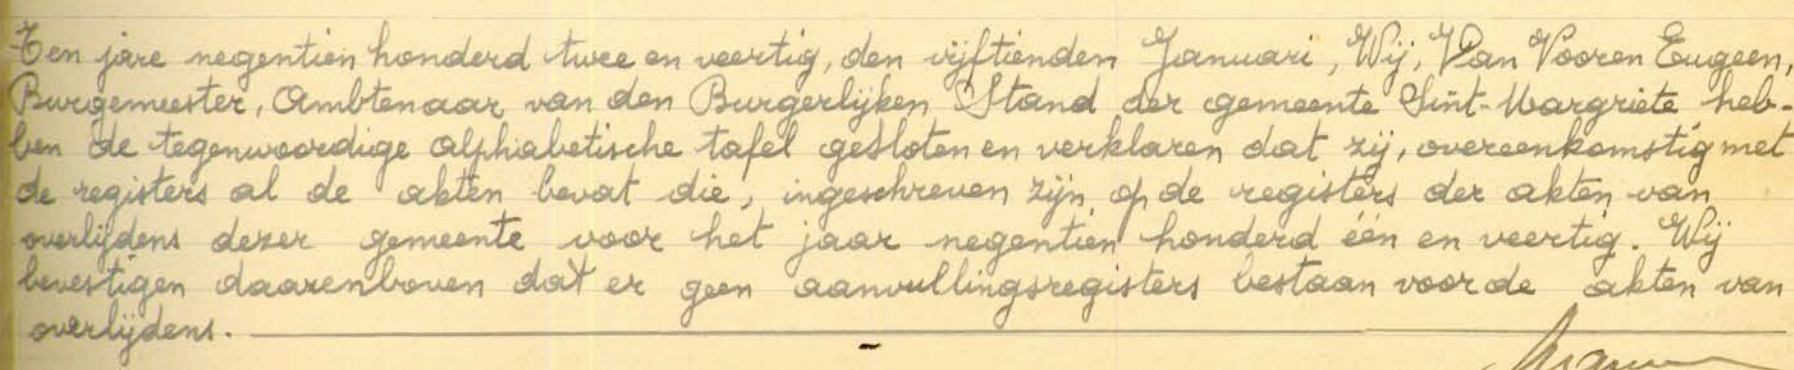 Ten jare negentien honderd twee en veertig, den vijftienden Januari, Wij, Van Vooren Eugeen,
Burgemeester, Ambtenaar van den Burgerlijken Stand der gemeente Sint-Margriete heb-
ben de tegenwoordige alphabetische tafel gesloten en verklaren dat zij, overeenkomstig met
de registers al de akten bevat die, ingeschreven zijn, op de registers der akten van
overlijdens dezer gemeente voor het jaar negentien honderd één en veertig. Wij
bevestigen daarenboven dat er geen aanvullingsregisters bestaan voor de akten van
overlijdens.